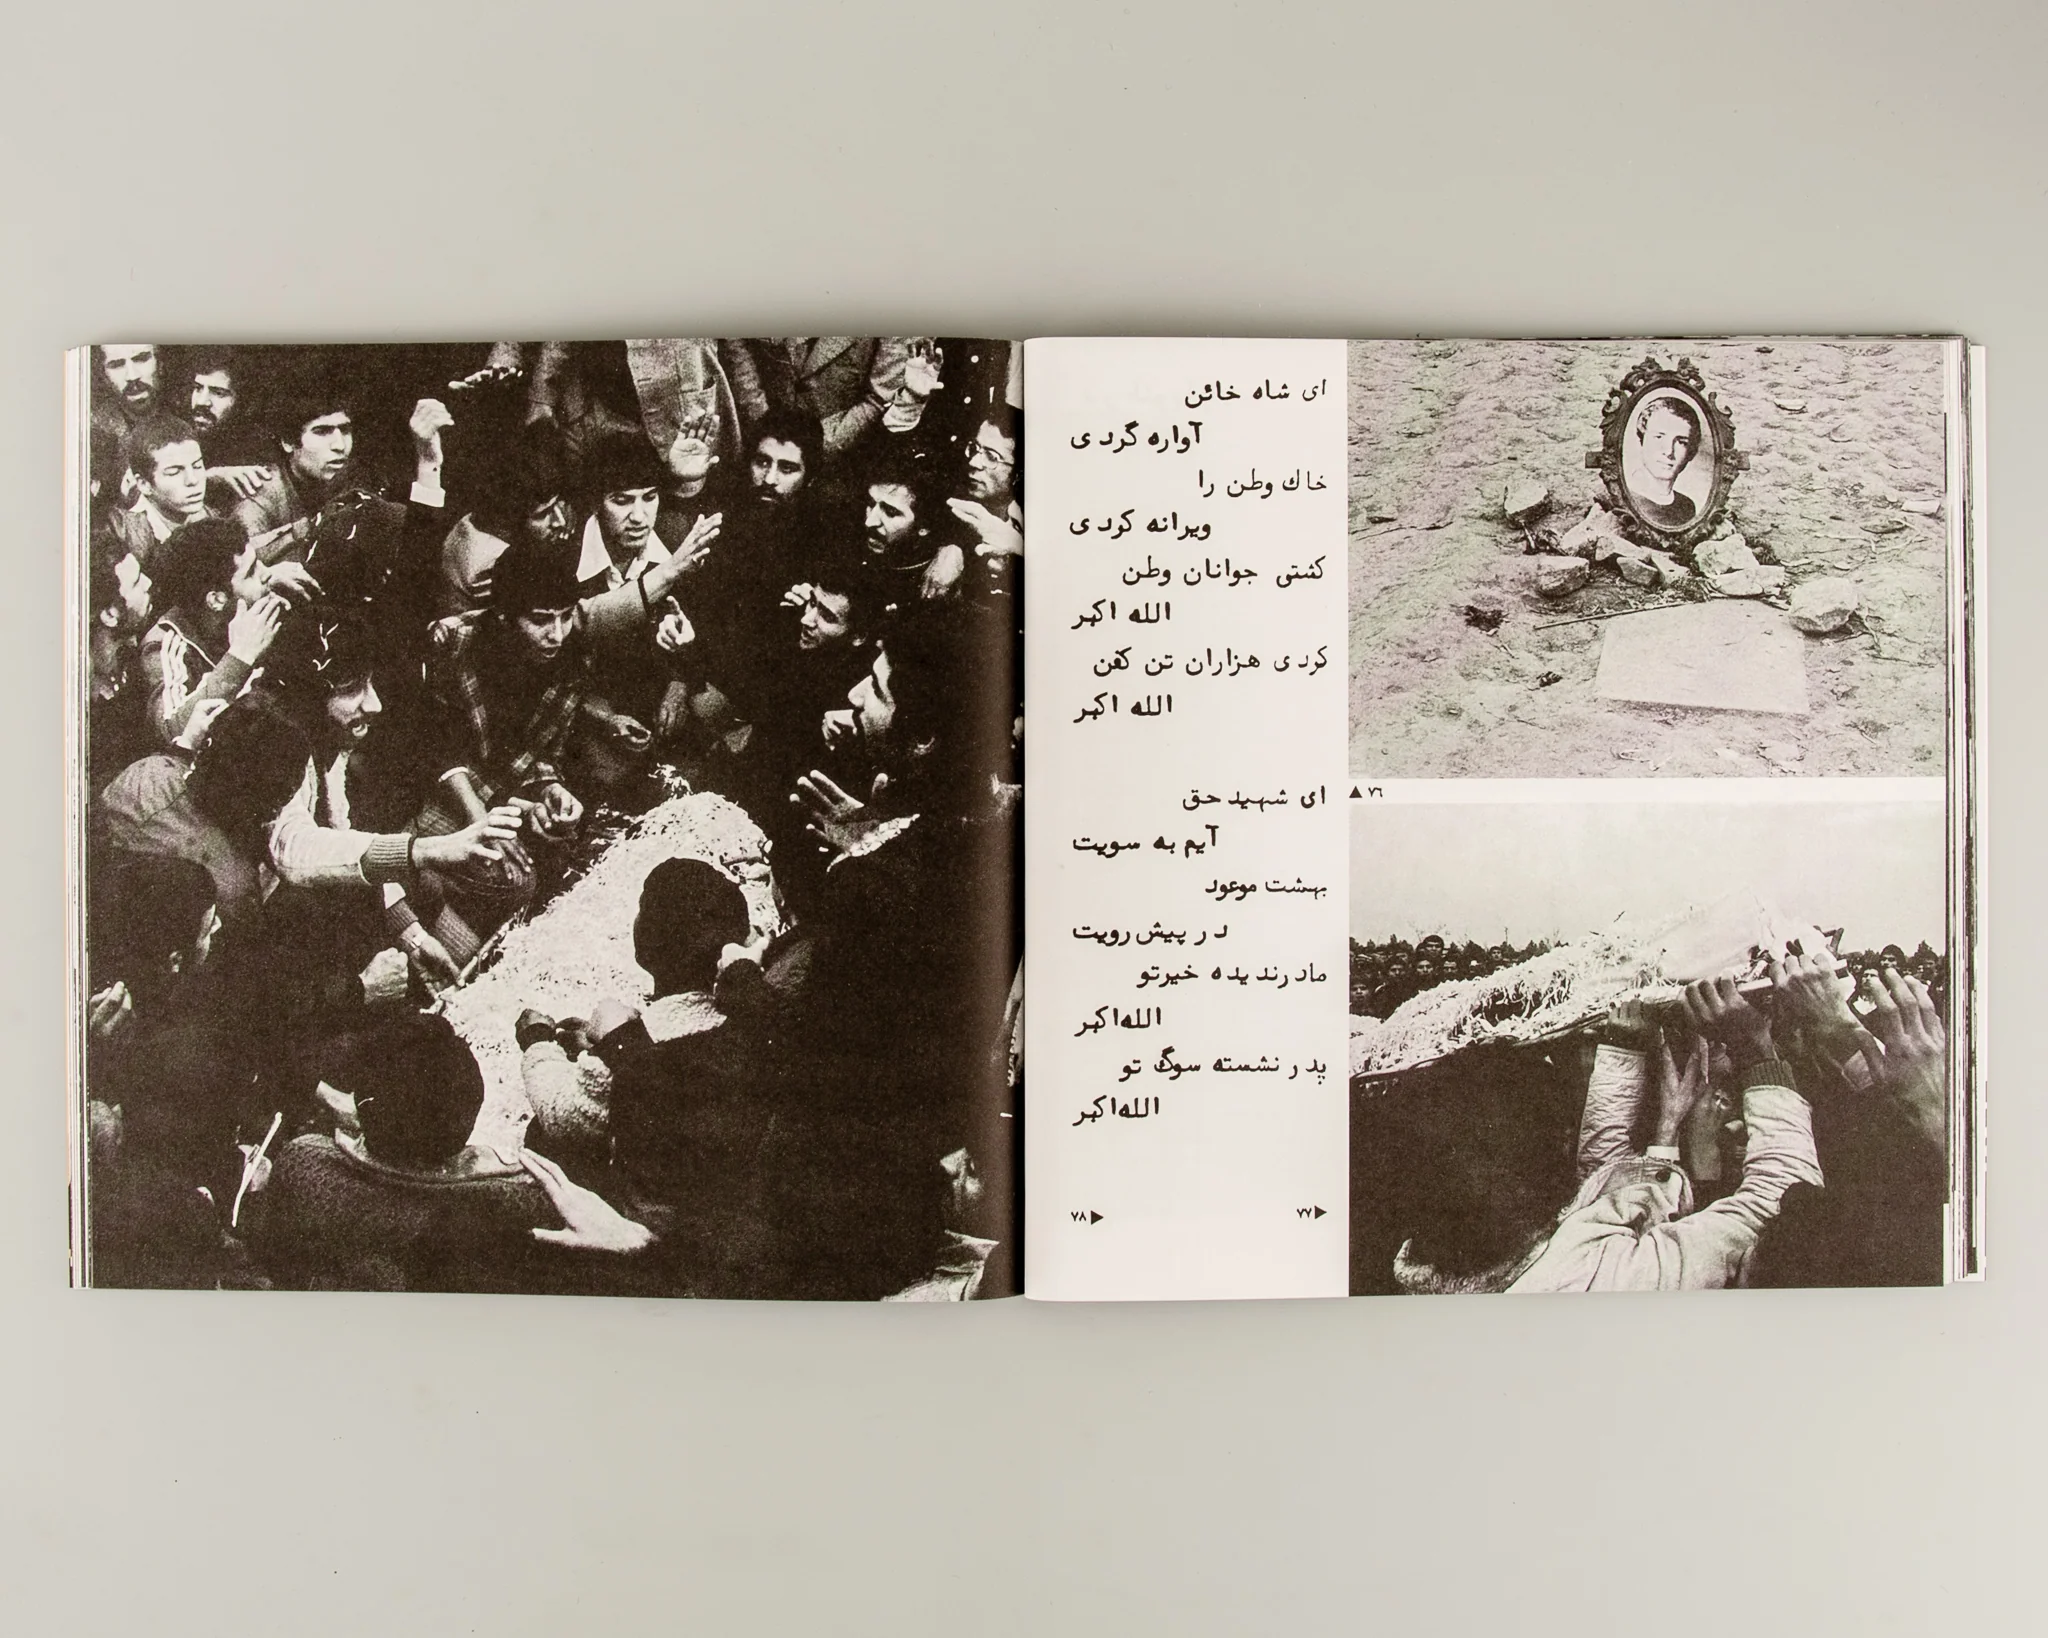 ای شاه خائن
آواره گردی
خاك وطن را
ویرانه کردی
کشتی جوانان وطن
الله اکبر
کردی هزاران تن کفن
الله اکبر
ای شهید حق
آیم به سویت
بهشت موعود
در پیش رویت
مادر ندیده خیر تو
الله اکبر
پدر نشسته سوگ تو
الله اکبر
▲ ۷٦
۷۷ ▶
۷۸ ▶